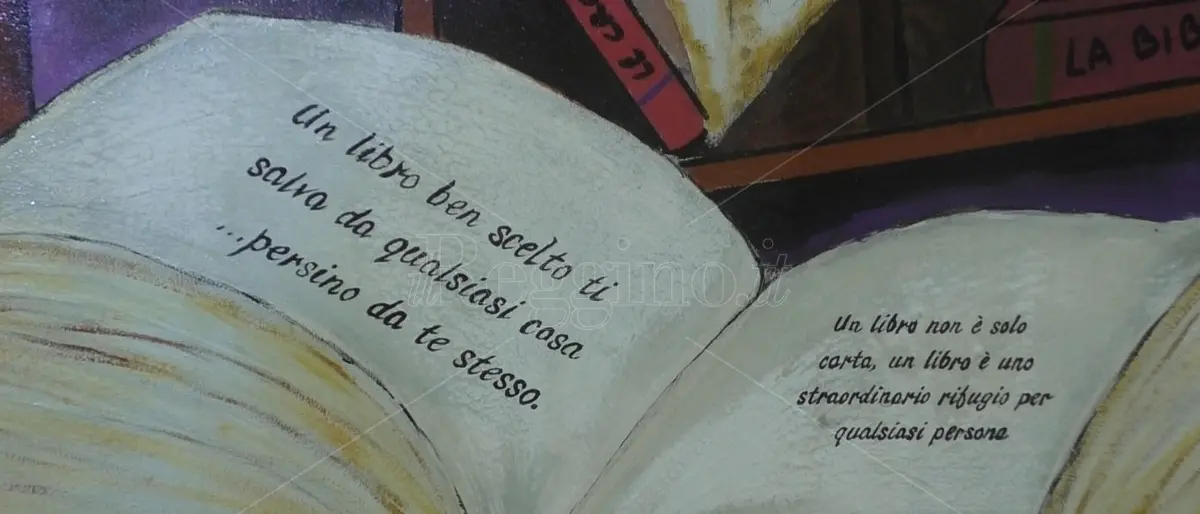 Un libro ben scelto ti
salva da qualsiasi cosa
...persino da te stesso.
Un libro non è solo
carta, un libro è uno
straordinario rifugio per
qualsiasi persona
LA BIB
il Reggino.it